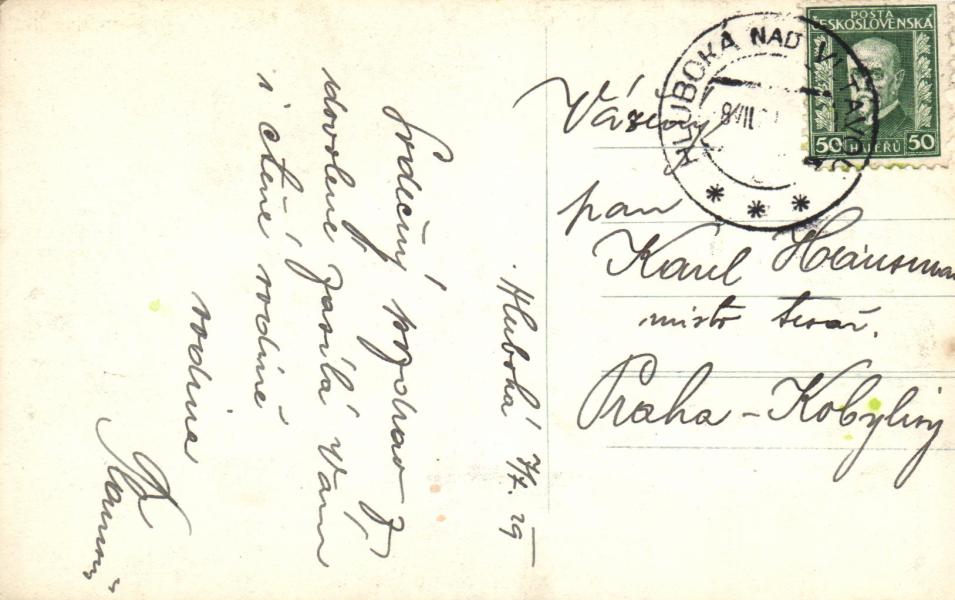 Hluboká 7/7. 29
Srdečný pozdrav z
dovolené zasílá Vám
i ctěné rodině
rodina
POSTA
ČESKOSLOVENSKÁ
50 HALÉŘŮ 50
HLUBOKÁ NAD VLTAVOU
8 VII
Vážený
pan
Karel
mistr tesař.
Praha - Kobylisy